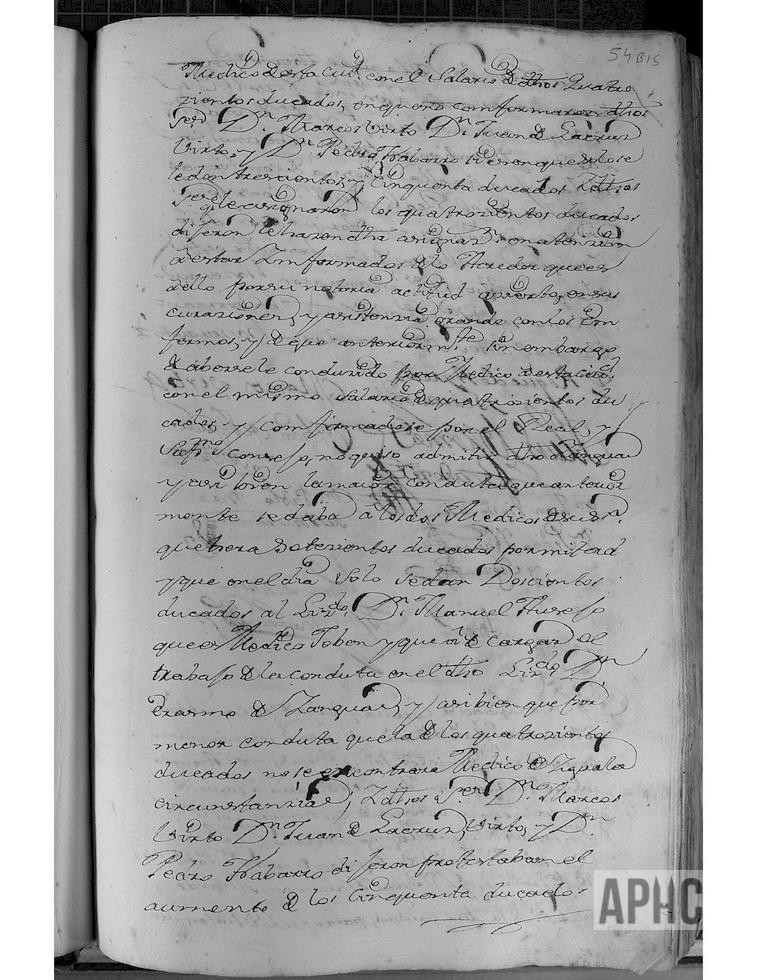 54 BIS
Medico de esta ciud. con el Salario de dhos Quatro
zientos ducados, en que no comformaron dhos
Sres. Dn. Marcos Virto Dn. Juan de Lacruz
Virto, y Dn. Pedro Nabarro dijeron que solo se
le dan trescientos, y cinquenta ducados Y dhos
Sres. que le asignaron los quatrozientos ducados
dijeron le hazen dha asignazn. en atenzion
a estar Ynformados de lo Acredor que es
a ello por su notoria actitud azierto, en sus
curaziones, y asistenzia grande con los Em
fermos, y de que anteriormte. sin embargo
de aberse le conduzido por Medico de esta ciud.
con el mismo Salario de quatrozientos du
cados, y comfirmadose por el Real, y
Supmo. Consejo, no quiso admitir dho Zangua
y asi bien la maior conduta que anterior
mente se daba a los dos Medicos
que hera Setezientos ducados por mitad
y que en el dia Solo se dan Doscientos
ducados al Lizdo. Dn. Manuel
que es Medico Joben y que a de cargar el
trabajo de la conduta en el dho Lizdo. Dn.
Erasmo de Zangua, y asi bien que por
menor conduta que la de los quatrozientos
ducados no se encontrara Medico de Yguales
circunstanzias, Y dhos Sres. Dn. Marcos
Virto Dn. Juan de Lacruz, Virto, y Dn.
Pedro Nabarro dijeron protestaban el
aumento de los cinquenta ducados
APHC